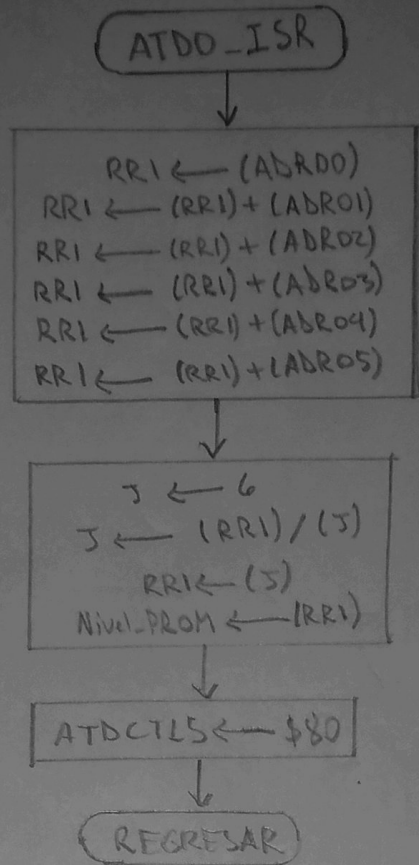 ATD0_ISR
RR1 ← (ADR00)
RR1 ← (RR1) + (ADR01)
RR1 ← (RR1) + (ADR02)
RR1 ← (RR1) + (ADR03)
RR1 ← (RR1) + (ADR04)
RR1 ← (RR1) + (ADR05)
J ← 6
J ← (RR1) / (J)
RR1 ← (J)
Nivel_PROM ← (RR1)
ATDCTL5 ← $80
REGRESAR